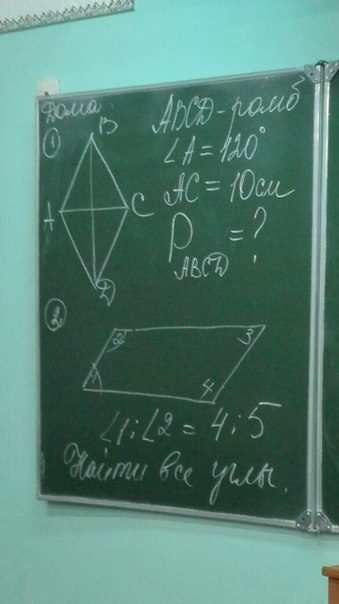 Дома:
1
ABCD - ромб
∠A = 120°
AC = 10 см
P ABCD = ?
B
A
C
D
2
2
3
1
4
∠1 : ∠2 = 4 : 5
Найти все углы.